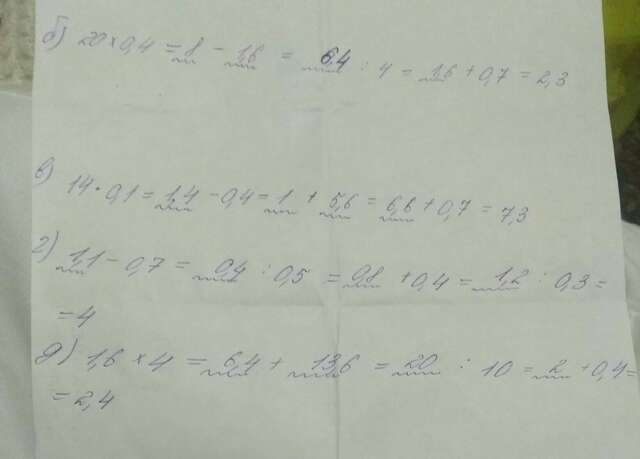 б) 20 × 0,4 = 8 - 1,6 = 6,4 : 4 = 1,6 + 0,7 = 2,3
в) 14 · 0,1 = 1,4 - 0,4 = 1 + 5,6 = 6,6 + 0,7 = 7,3
г) 1,1 - 0,7 = 0,4 : 0,5 = 0,8 + 0,4 = 1,2 : 0,3 =
= 4
д) 1,6 × 4 = 6,4 + 13,6 = 20 : 10 = 2 + 0,4 =
= 2,4